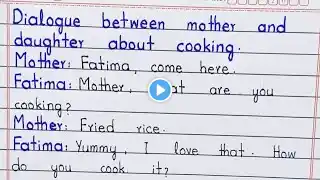 Dialogue between mother and
daughter about cooking.
Mother: Fatima, come here.
Fatima: Mother, are you
cooking?
Mother: Fried rice.
Fatima: Yummy, I love that. How
do you cook it?